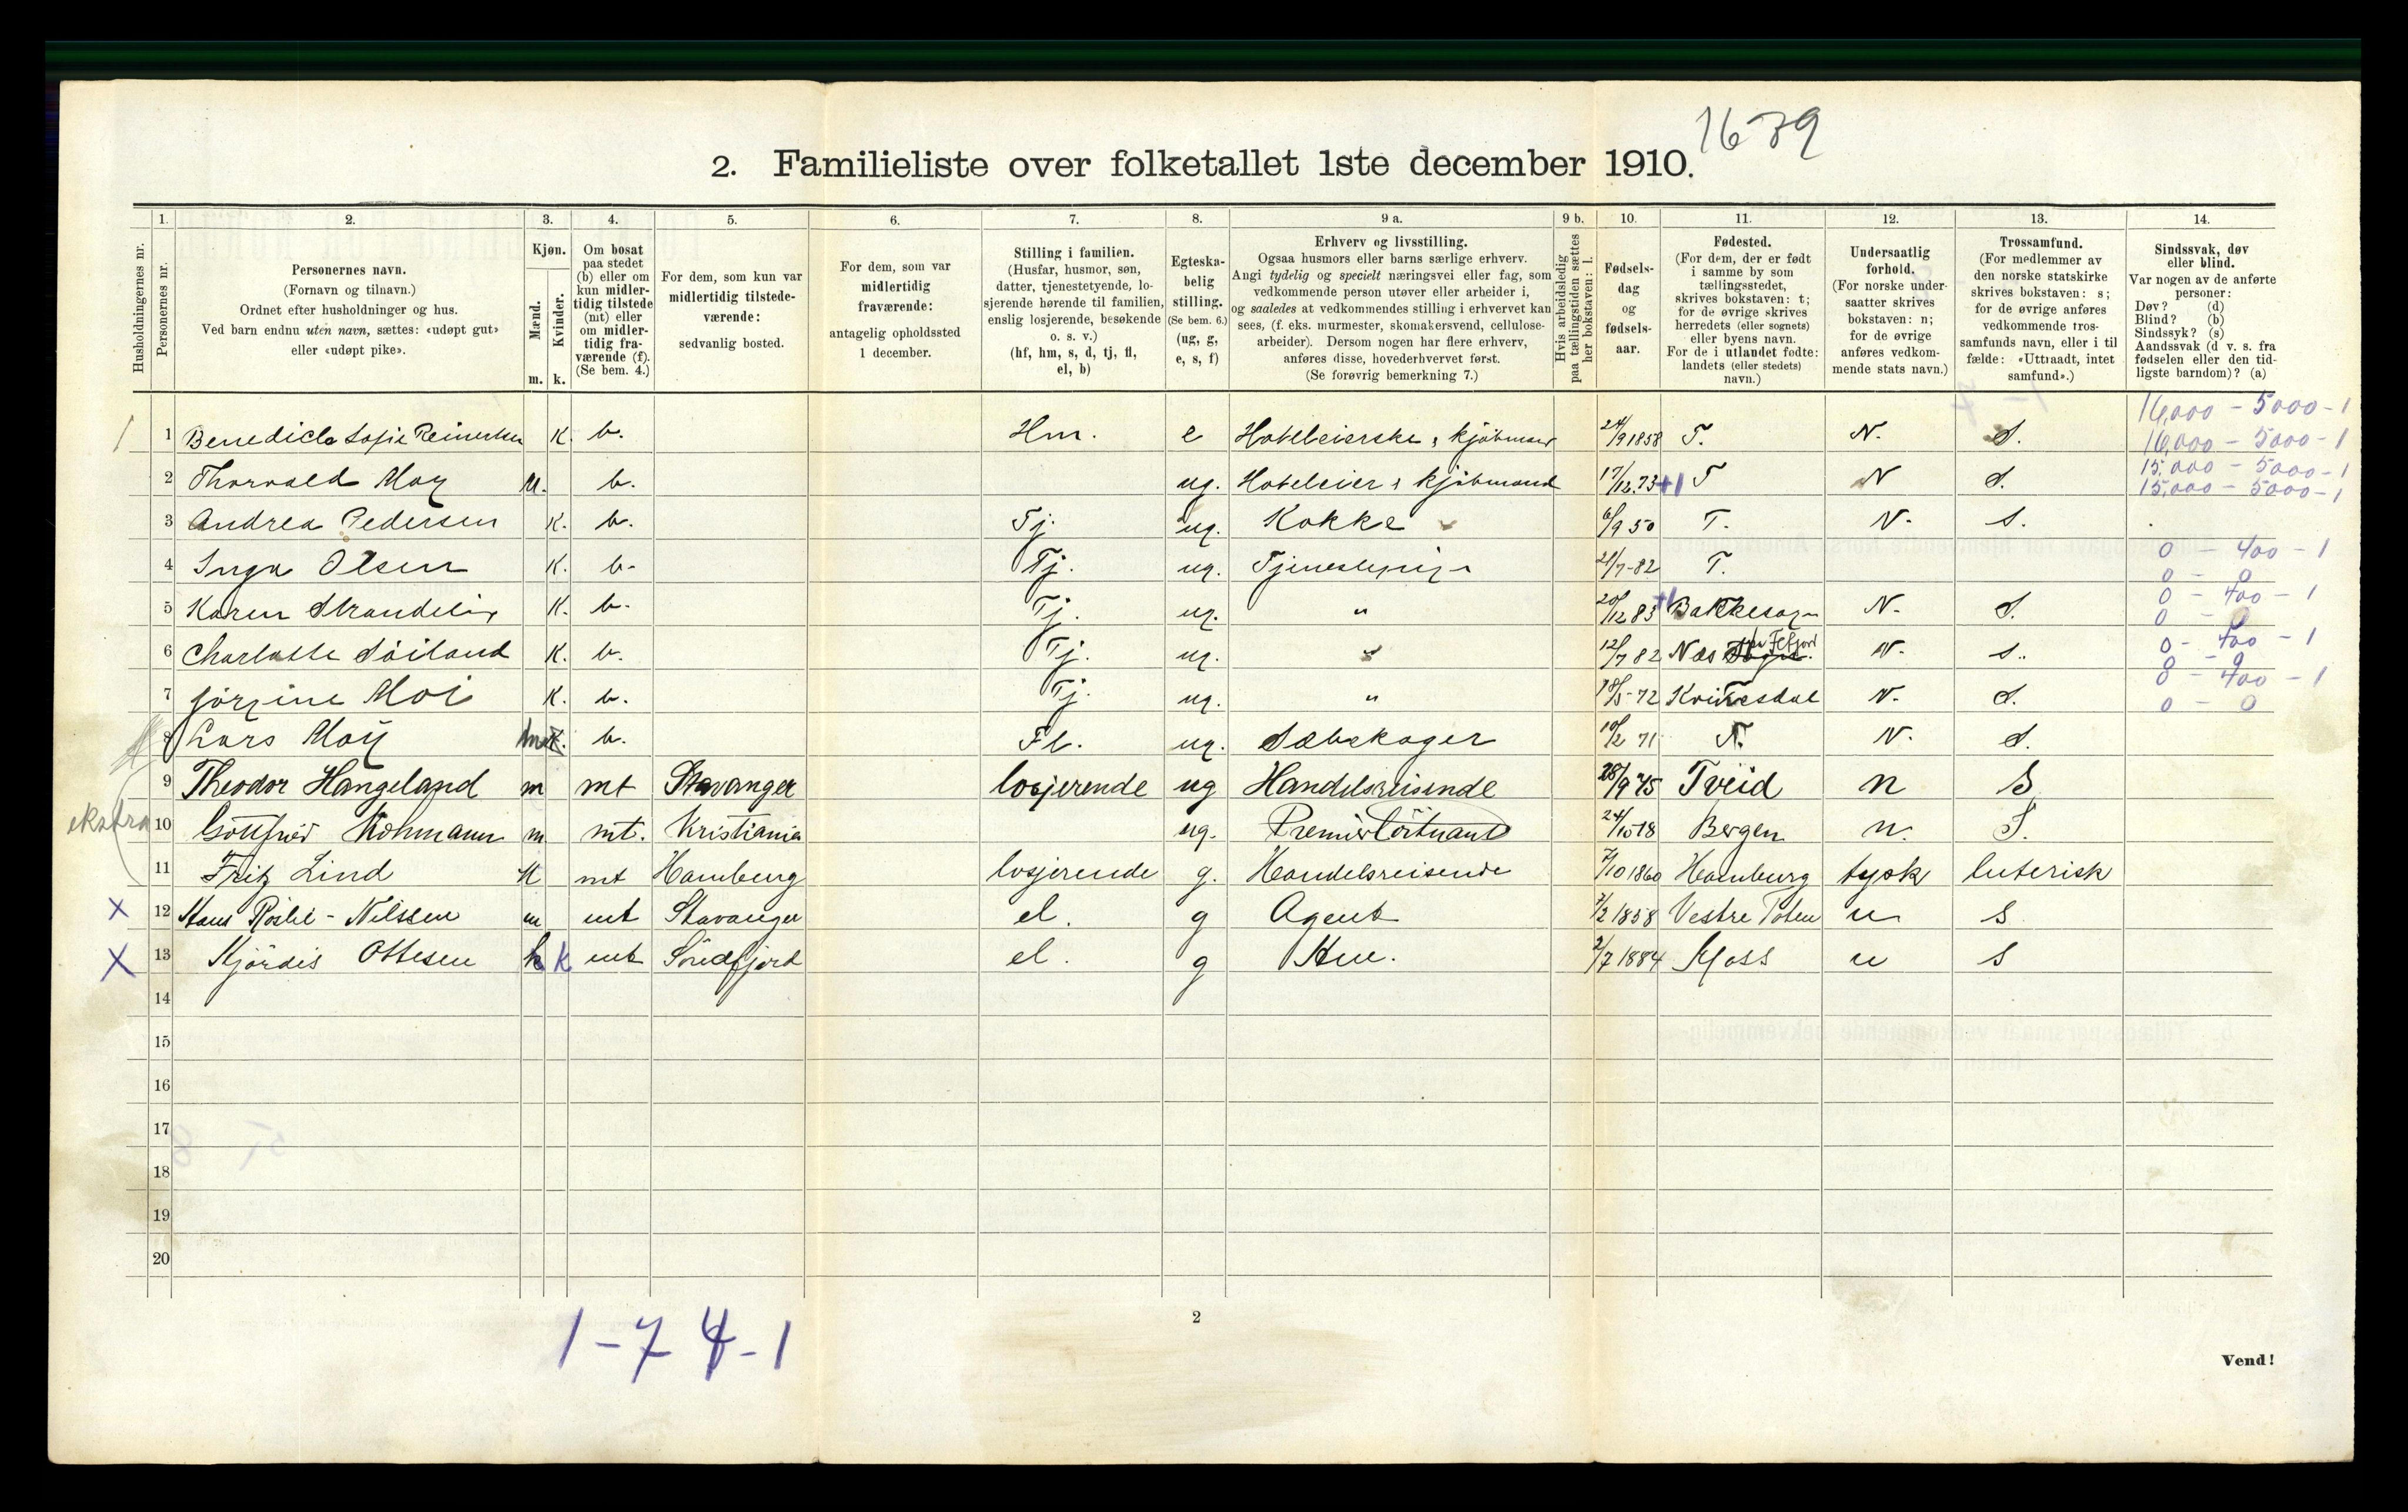 1679
2. Familieliste over folketallet 1ste december 1910.
1. 2. 3. 4. 5. 6. 7. 8. 9 a. 9 b. 10. 11. 12. 13. 14.
Husholdningernes nr.
Personernes nr.
Personernes navn.
(Fornavn og tilnavn.)
Ordnet efter husholdninger og hus.
Ved barn endnu uten navn, sættes: «udøpt gut»
eller «udøpt pike».
Kjøn.
Mænd.
Kvinder.
m. k.
Om bosat
paa stedet
(b) eller om
kun midler-
tidig tilstede
(mt) eller
om midler-
tidig fra-
værende (f).
(Se bem. 4.)
For dem, som kun var
midlertidig tilstede-
værende:
sedvanlig bosted.
For dem, som var
midlertidig
fraværende:
antagelig opholdssted
1 december.
Stilling i familien.
(Husfar, husmor, søn,
datter, tjenestetyende, lo-
sjerende hørende til familien,
enslig losjerende, besøkende
o. s. v.)
(hf, hm, s, d, tj, fl,
el, b)
Egteska-
belig
stilling.
(Se bem. 6.)
(ug, g,
e, s, f)
Erhverv og livsstilling.
Ogsaa husmors eller barns særlige erhverv.
Angi tydelig og specielt næringsvei eller fag, som
vedkommende person utøver eller arbeider i,
og saaledes at vedkommendes stilling i erhvervet kan
sees, (f. eks. murmester, skomakersvend, cellulose-
arbeider). Dersom nogen har flere erhverv,
anføres disse, hovederhvervet først.
(Se forøvrig bemerkning 7.)
Hvis arbeidsledig
paa tællingstiden sættes
her bokstaven: l.
Fødsels-
dag
og
fødsels-
aar.
Fødested.
(For dem, der er født
i samme by som
tællingsstedet,
skrives bokstaven: t;
for de øvrige skrives
herredets (eller sognets)
eller byens navn.
For de i utlandet fødte:
landets (eller stedets)
navn.)
Undersaatlig
forhold.
(For norske under-
saatter skrives
bokstaven: n;
for de øvrige
anføres vedkom-
mende stats navn.)
Trossamfund.
(For medlemmer av
den norske statskirke
skrives bokstaven: s;
for de øvrige anføres
vedkommende tros-
samfunds navn, eller i til
fælde: «Uttraadt, intet
samfund».)
Sindssvak, døv
eller blind.
Var nogen av de anførte
personer:
Døv? (d)
Blind? (b)
Sindssyk? (s)
Aandssvak (d v. s. fra
fødselen eller den tid-
ligste barndom)? (a)
16,000 - 5000 - 1
1 1 Benedicte Sofie Reinertsen K. b. Hm. e Hoteleierske & kjøbmand 24/9 1858 T. N. S. 16,000 - 5000 - 1
15,000 - 5000 - 1
2 Thorvald Moy M. b. ug. Hoteleier & kjøbmand 17/12.73 +1 T N S. 15,000 - 5000 - 1
3 Andrea Pedersen K. b. Tj. ug. Kokke 6/9 50 T. N. S.
0 - 400 - 1
4 Inga Olsen K. b. Tj. ug. Tjenestepige 21/7-82 T. 0 - 0
0 - 400 - 1
5 Karen K. b. Tj. ug. " 20/12 83 +1 Bakkesogn N. S. 0 - 0
0 - 400 - 1
6 Charlotte Söiland K. b. Tj. ug. " 12/7 82 Nes N. S. 0 - 0
400 - 1
7 Jörgine Moi K. b. Tj. ug. " 18/5-72 Kvinesdal N. S. 0 - 0
8 Lars Moy m b. Fl. ug. Sæbekoger 10/2 71 N. S.
9 Theodor Hangeland m mt Stavanger losjerende ug Handelsreisende 28/9 75 Tveid n S
ekstra 10 Gottfried m. mt. Kristiania ug. Premierlöitnant Bergen n. S.
11 Fritz Lind mt Hamburg losjerende g. Handelsreisende 7/10 1860 Hamburg tysk luterisk
x 12 Hans - Nilssen m mt Stavanger el. g Agent 7/2 1858 Vestre Toten n S
x 13 Hjördis Ottesen k mt Söndfjord el. g Hm. 2/7 1884 Moss n S
14
15
16
17
18
19
20
1 - 7 4 - 1
2
Vend!